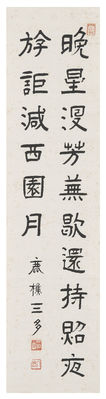 晚星沒芳蕪歇還持照夜
斿詎減西園月
鹿樵三多